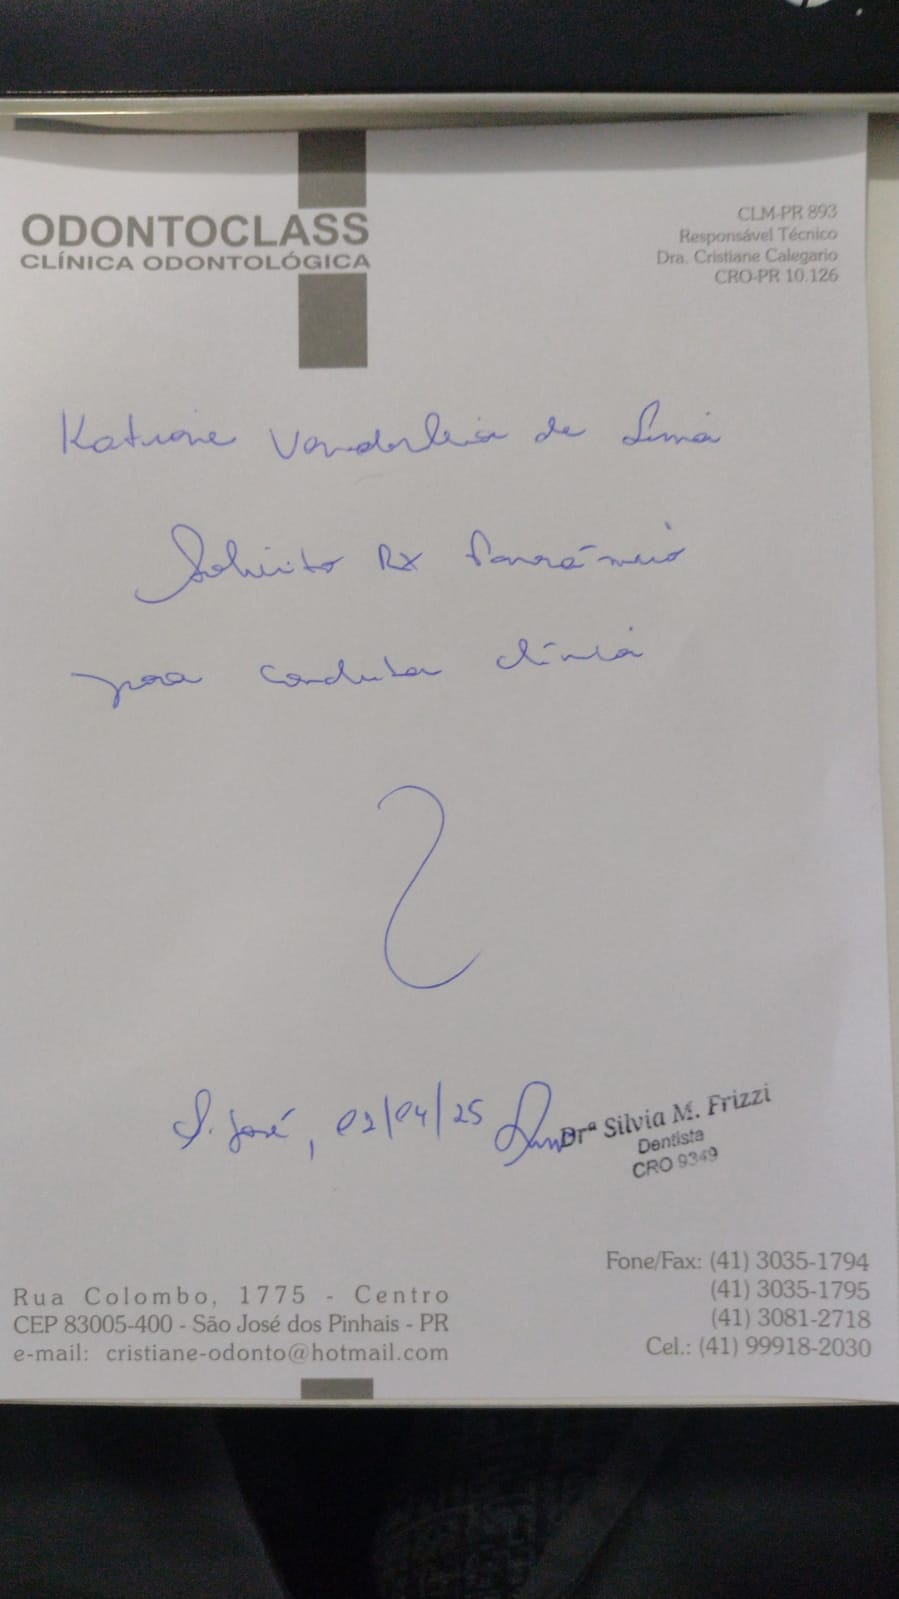 ODONTOCLASS
CLÍNICA ODONTOLÓGICA
CLM-PR 893
Responsável Técnico
Dra. Cristiane Calegario
CRO-PR 10.126
Katiane Vanderleia de Lima
Solicito RX Panorâmico
para conduta clínica
S. José, 02/04/25
Drª Silvia M. Frizzi
Dentista
CRO 9349
Rua Colombo, 1775 - Centro
CEP 83005-400 - São José dos Pinhais - PR
e-mail: cristiane-odonto@hotmail.com
Fone/Fax: (41) 3035-1794
(41) 3035-1795
(41) 3081-2718
Cel.: (41) 99918-2030